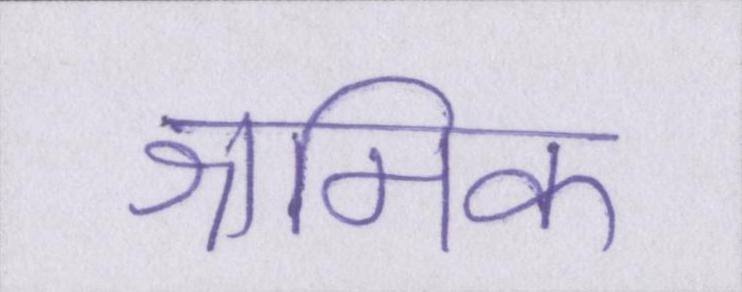 श्रमिक